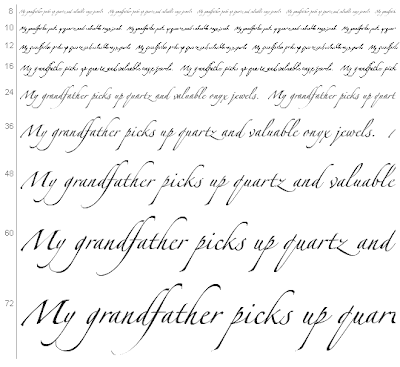 8 My grandfather picks up quartz and valuable onyx jewels. My grandfather picks up quartz and valuable onyx jewels. My grandfather picks up quartz and valuable onyx jewels. My grandfather picks
10 My grandfather picks up quartz and valuable onyx jewels. My grandfather picks up quartz and valuable onyx jewels. My grandfather picks up quartz and valuable onyx jewels.
12 My grandfather picks up quartz and valuable onyx jewels. My grandfather picks up quartz and valuable onyx jewels. My grandfather picks
16 My grandfather picks up quartz and valuable onyx jewels. My grandfather picks up quartz and valuable onyx jewels. My
24 My grandfather picks up quartz and valuable onyx jewels. My grandfather picks up quart
36 My grandfather picks up quartz and valuable onyx jewels.
48 My grandfather picks up quartz and valuable
60 My grandfather picks up quartz and
72 My grandfather picks up quar